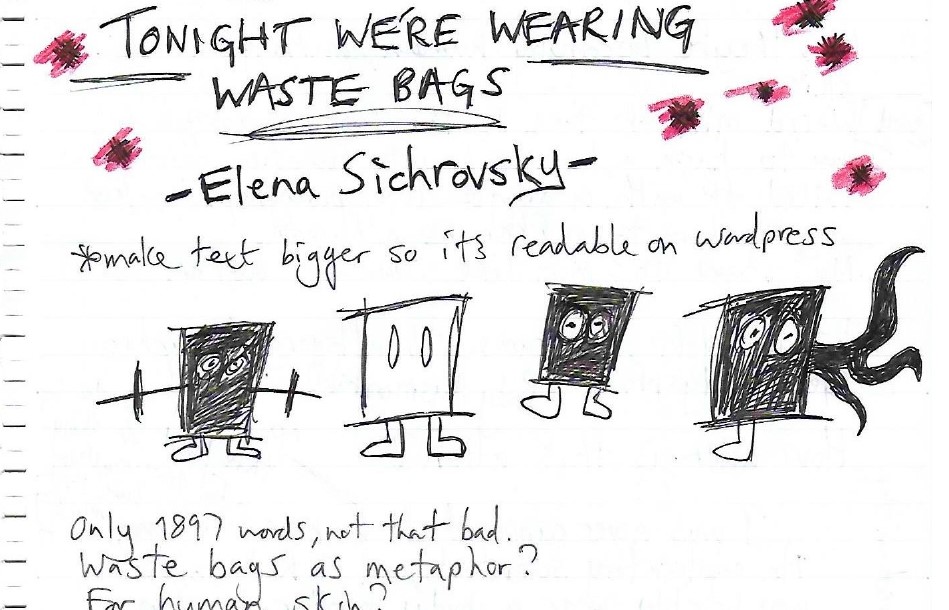 TONIGHT WE'RE WEARING
WASTE BAGS
-Elena Sichrovsky-
*make text bigger so it's readable on wordpress
Only 1897 words, not that bad.
Waste bags as metaphor?
For human skin?